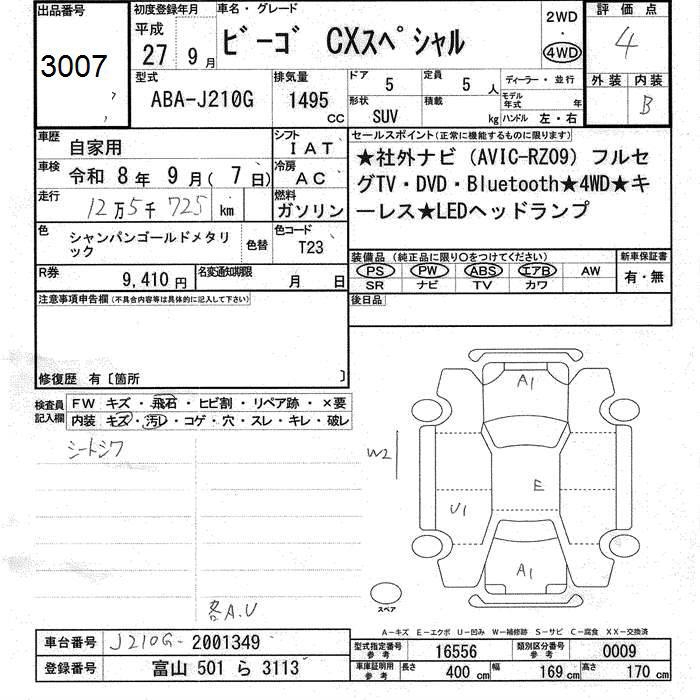 出品番号
3007
初度登録年月
平成
27 年 9 月
車名・グレード
ビーゴ CXスペシャル
2WD
・
4WD
評価点
4
外装 内装
B
型式
ABA-J210G
排気量
1495 cc
ドア 5
定員 5 人
形状 SUV
積載 kg
ディーラー・並行
モデル年式 年
ハンドル 左・右
車歴 自家用
シフト IAT
車検 令和 8 年 9 月( 7 日)
冷房 AC
走行 12万5千725 km
燃料 ガソリン
色 シャンパンゴールドメタリック
色替
色コード T23
R券 9,410 円
名変通知期限 月 日
セールスポイント(正常に機能するものに限ります)
★社外ナビ (AVIC-RZ09) フルセ
グTV・DVD・Bluetooth★4WD★キ
ーレス★LEDヘッドランプ
装備品 (純正品に限り○をつけてください)
PS PW ABS エアB AW
SR ナビ TV カワ
新車保証書
有・無
後日品
注意事項申告欄(不具合内容等は具体的に記入して下さい)
修復歴 有〔箇所 〕
検査員記入欄
FW キズ・飛石・ヒビ割・リペア跡・×要
内装 キズ・汚レ・コゲ・穴・スレ・キレ・破レ
シートシワ
各A.U
A1
W2
E
U1
A1
スペア
A-キズ E-エクボ U-凹み W-補修跡 S-サビ C-腐食 XX-交換済
車台番号 J210G-2001349
登録番号 富山 501 ら 3113
型式指定番号 参考 16556
類別区分番号 参考 0009
車庫証明用 参考 長さ 400 cm 幅 169 cm 高さ 170 cm